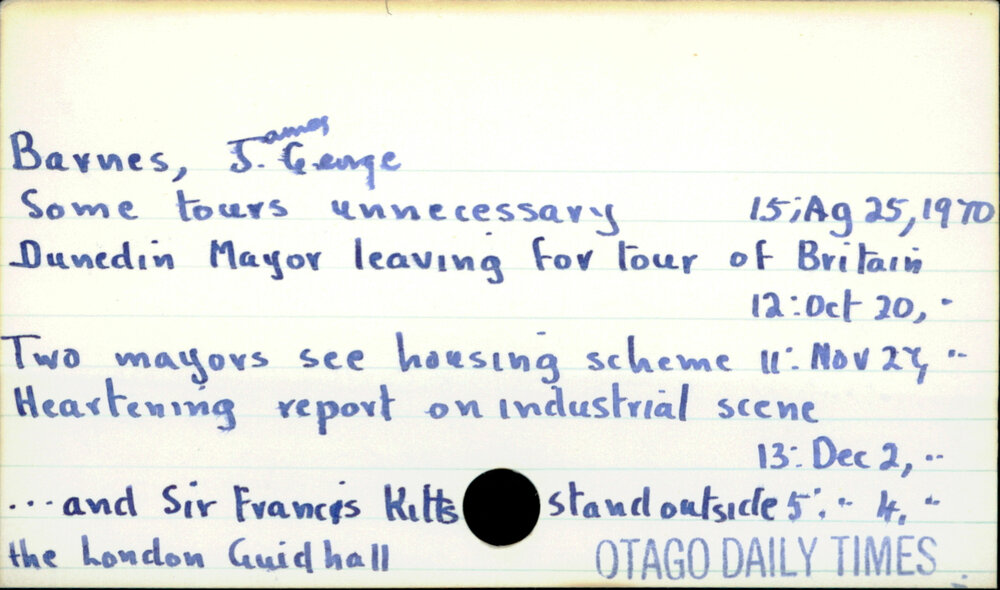 Barnes, James George
Some tours unnecessary 15; Ag 25, 1970
Dunedin Mayor leaving for tour of Britain
12: Oct 20, "
Two mayors see housing scheme 11: Nov 24, "
Heartening report on industrial scene
13: Dec 2, "
...and Sir Francis Kitts stand outside 5: " 4, "
the London Guidhall
OTAGO DAILY TIMES